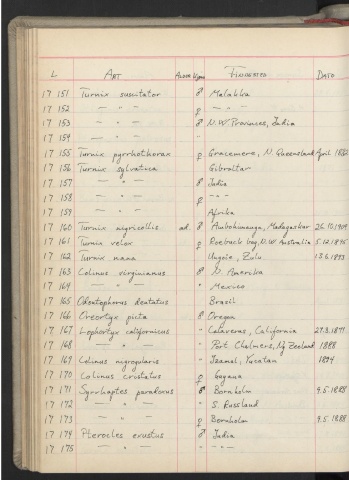 L. ART ALDER KJØN FINDESTED DATO
17 151 Turnix suscitator ♂ Malakka
17 152 — " — ♀ — " —
17 153 — " — ♂ N.W. Provinces, India
17 154 — " — " — " —
17 155 Turnix pyrrhothorax ♀ Gracemere, N. Queensland April
17 156 Turnix sylvatica Gibraltar
17 157 — " — ♂ India
17 158 — " — ♀ — " —
17 159 — " — Afrika
17 160 Turnix nigricollis ad. ♂ Madagaskar
17 161 Turnix velox ♀ Roebuck bay, N.W. Australia 5.12.1895
17 162 Turnix nana Zulu
17 163 Colinus virginianus ♂ N. Amerika
17 164 — " — " Mexico
17 165 Odontophorus dentatus Brazil
17 166 Oreortyx picta ♂ Oregon
17 167 Lophortyx californicus " Calaveras, California
17 168 — " — " Port Chalmers, Ny Zeeland 1888
17 169 Colinus nigrogularis " Izamal, Yucatan
17 170 Colinus cristatus ♀ Guyana
17 171 Syrrhaptes paradoxus ♂ Bornholm 9.5.1888
17 172 — " — " S. Russland
17 173 — " — ♀ Bornholm 9.5.1888
17 174 Pterocles exustus ♂ India
17 175 — " — " — " —